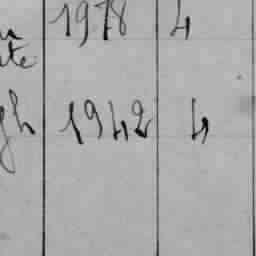 1978 4
ite
gh 1942 4